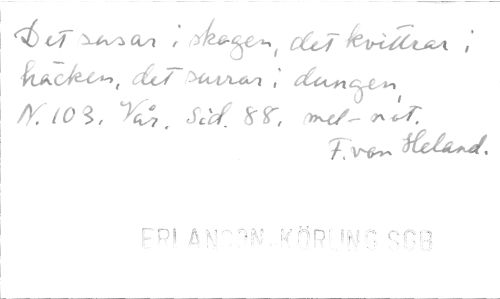 Det susar i skogen, det kvittrar i
häcken, det surrar i dungen,
N. 103. Vår. Sid. 88. mel-not.
F. von Heland.
ERLANSON-KÖRLING SGB